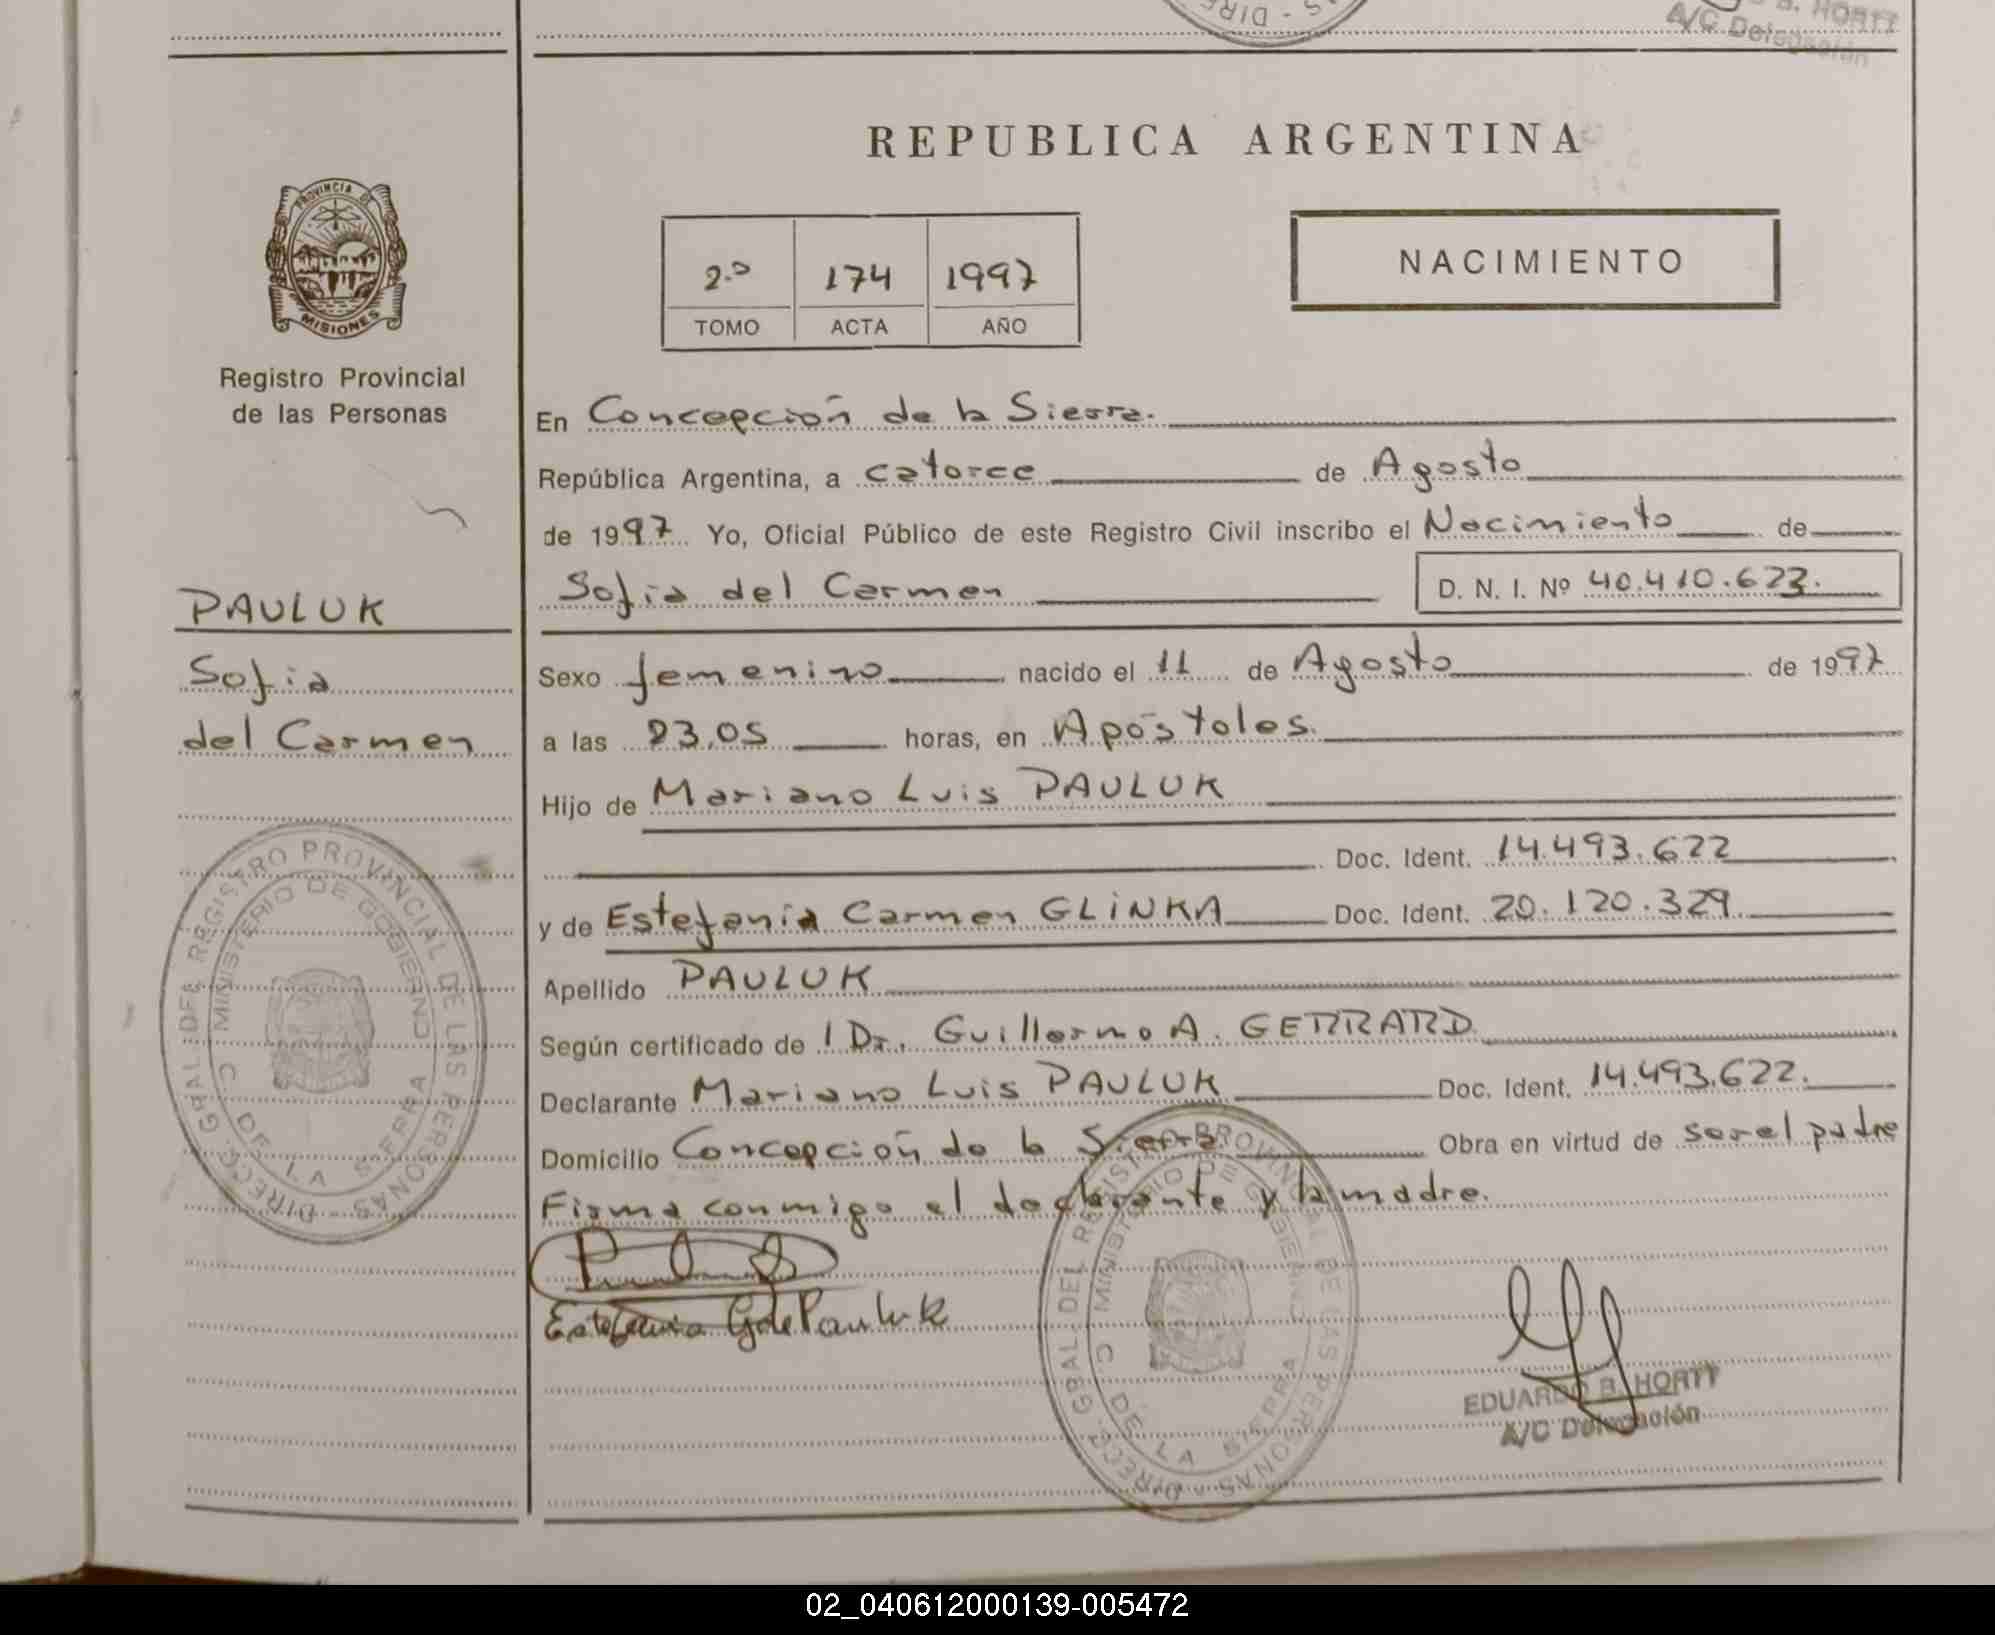 B. HORTT
A/C Delegación
REPUBLICA ARGENTINA
PROVINCIA DE
MISIONES
Registro Provincial
de las Personas
2.º 174 1997
TOMO ACTA AÑO
NACIMIENTO
En Concepción de la Sierra.
República Argentina, a catorce de Agosto
de 1997 Yo, Oficial Público de este Registro Civil inscribo el Nacimiento de
Sofia del Carmen D. N. I. Nº 40.410.623.
PAULUK
Sofia
del Carmen
Sexo femenino nacido el 11 de Agosto de 1997
a las 23,05 horas, en Apóstoles.
Hijo de Mariano Luis PAULUK
Doc. Ident. 14.493.622
y de Estefania Carmen GLINKA Doc. Ident. 20.120.329
Apellido PAULUK
Según certificado de l Dr. Guillermo A. GERRARD
Declarante Mariano Luis PAULUK Doc. Ident. 14.493.622.
Domicilio Concepción de la Sierra Obra en virtud de ser el padre
Firma conmigo el declarante y la madre.
Estefania G de Pauluk
DIRECC. GRAL. DEL REGISTRO PROVINCIAL DE LAS PERSONAS
MINISTERIO DE GOBIERNO
C. DE LA SIERRA
DIRECC. GRAL. DEL REGISTRO PROVINCIAL DE LAS PERSONAS
MINISTERIO DE GOBIERNO
C. DE LA SIERRA
EDUARDO B. HORTT
A/C Delegación
02_040612000139-005472